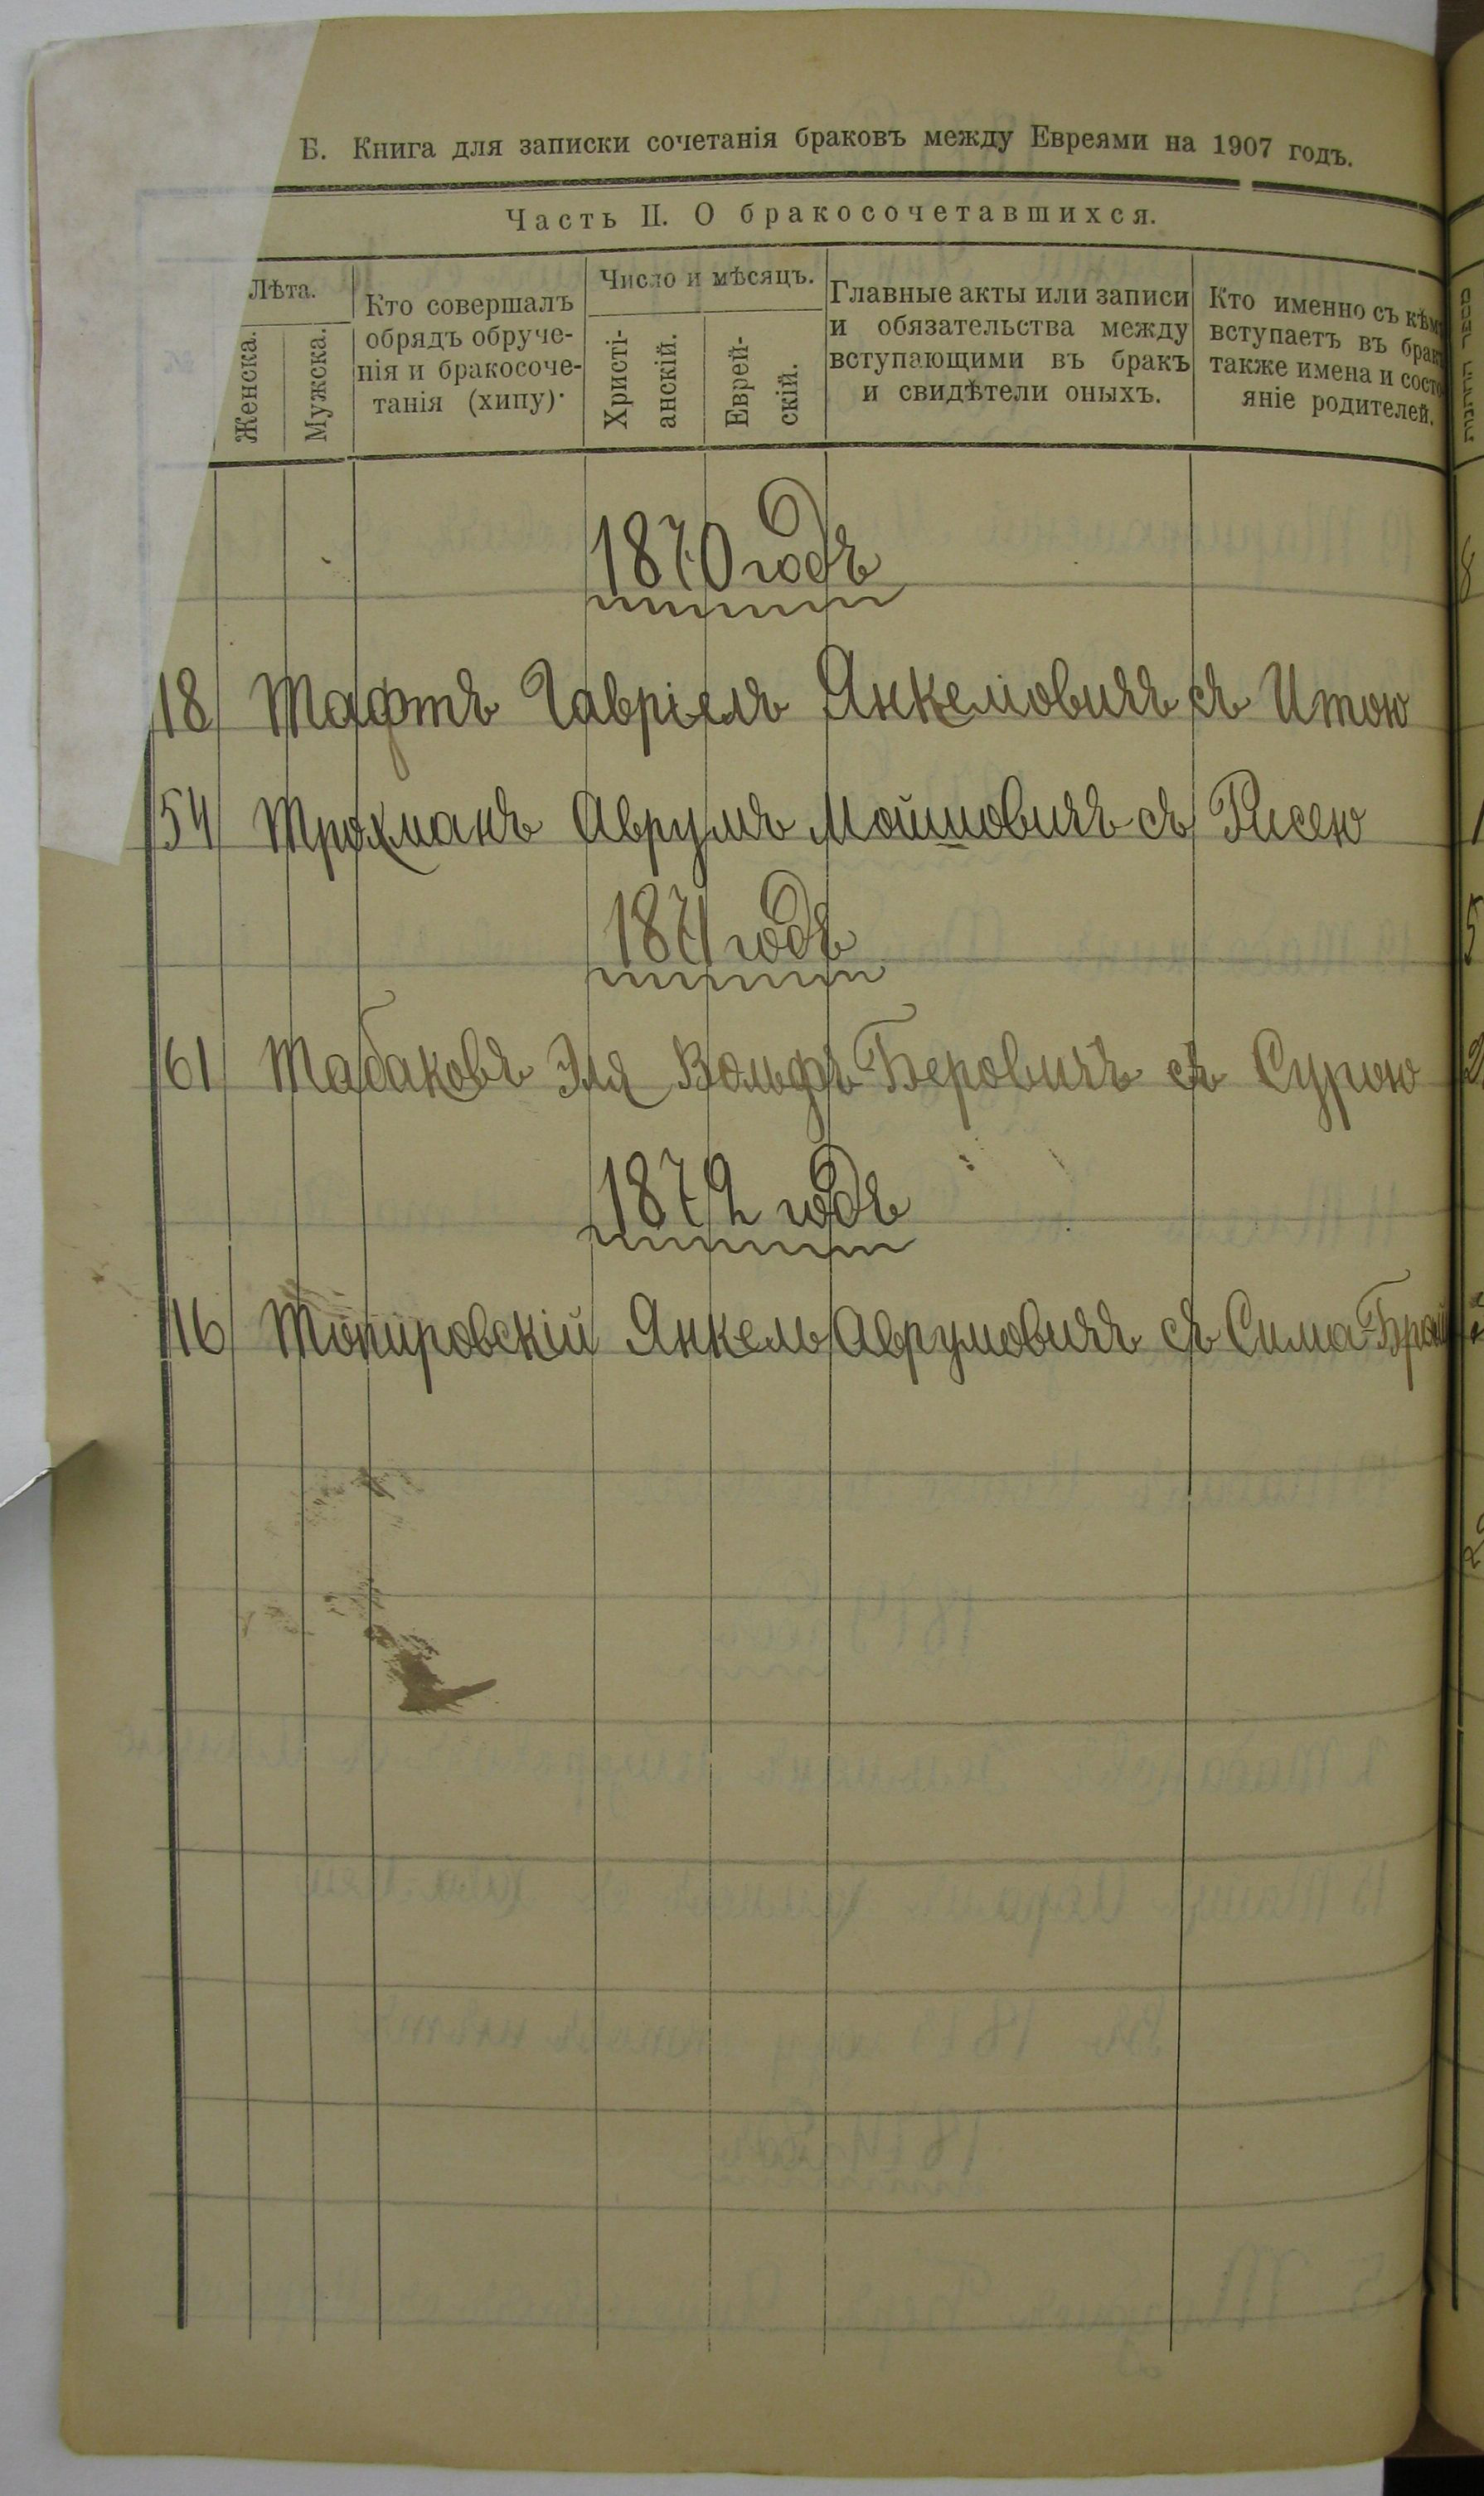 Б. Книга для записки сочетанія браковъ между Евреями на 1907 годъ.
Часть II. О бракосочетавшихся.
Лѣта.
Женска.
Мужска.
Кто совершалъ
обрядъ обруче-
нія и бракосоче-
танія (хипу)·
Число и мѣсяцъ.
Христі-
анскій.
Еврей-
скій.
Главные акты или записи
и обязательства между
вступающими въ бракъ
и свидѣтели оныхъ.
Кто именно съ кѣмъ
вступаетъ въ бракъ
также имена и состо-
яніе родителей.
1870 годъ
18 Тафтъ Гавріелъ Янкеліовичъ съ Итою
54 Трохманъ Аврумъ Мойшовичъ съ Рисею
1871 годъ
61 Табаковъ Эля Вольфъ Беровичъ съ Сурою
1872 годъ
16 Топировскій Янкель Аврумовичъ съ Сима-Брай